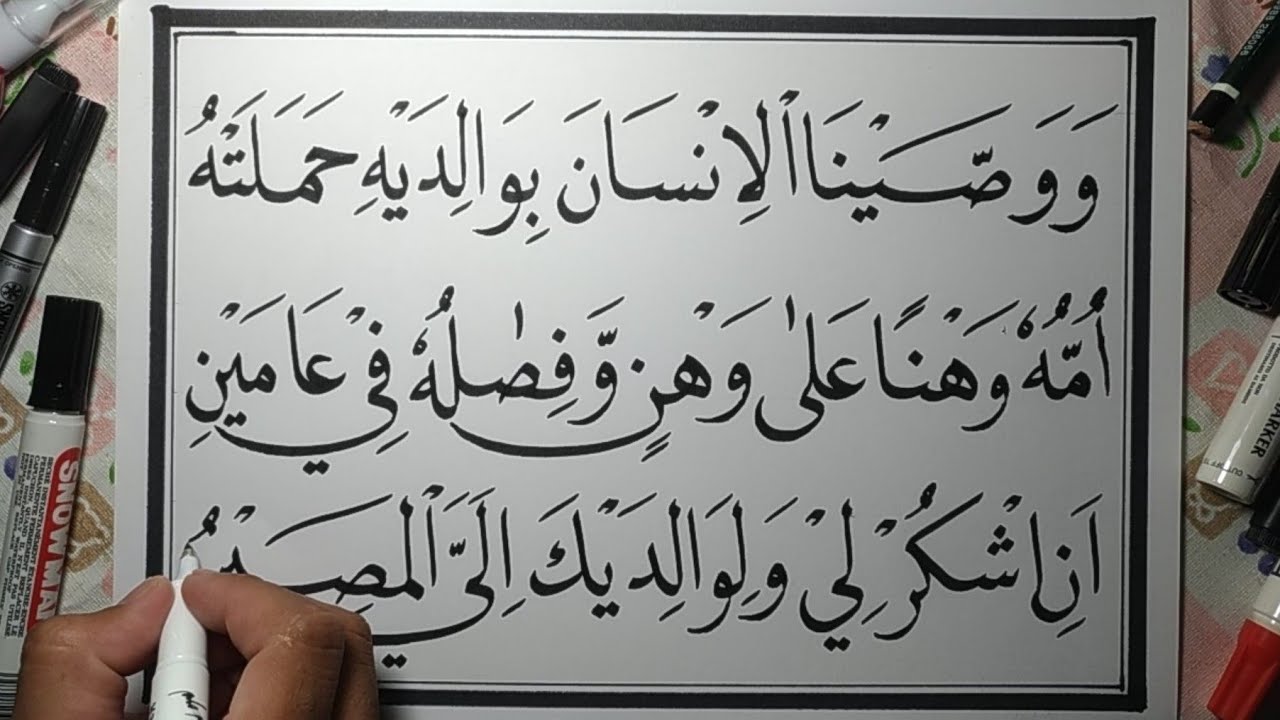 وَوَصَّيْنَا الْاِنْسَانَ بِوَالِدَيْهِ حَمَلَتْهُ
اُمُّهٗ وَهْنًا عَلٰى وَهْنٍ وَّفِصٰلُهٗ فِيْ عَامَيْنِ
اَنِ اشْكُرْ لِيْ وَلِوَالِدَيْكَ اِلَيَّ الْمَصِيْرُ
SNOWMAN
MARKER